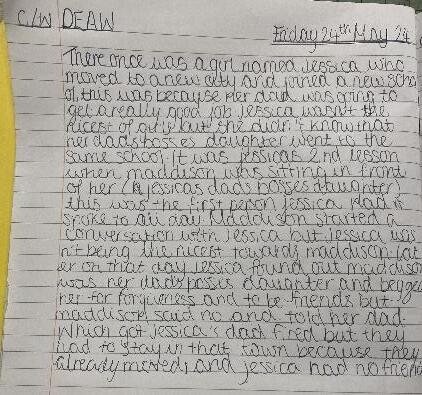 C/W DEAW
Friday 24th May 24
There once was a girl named Jessica who
moved to a new city and joined a new scho
ol, this was because her dad was going to
get a really good job Jessica wasn't the
nicest of girls but she didn't know that
her dads bosses daughter went to the
same school. It was jessicas 2nd lesson
when maddison was sitting in front
of her (jessicas dads bosses daughter)
this was the first person Jessica had
spoke to all day Maddison started a
conversation with Jessica but jessica was
n't being the nicest towards maddison lat
er on that day Jessica found out maddison
was her dads bosses daughter and begged
her for forgiveness and to be friends but
maddison said no and told her dad.
Which got Jessica's dad fired but they
had to stay in that town because they
already moved, and jessica had no